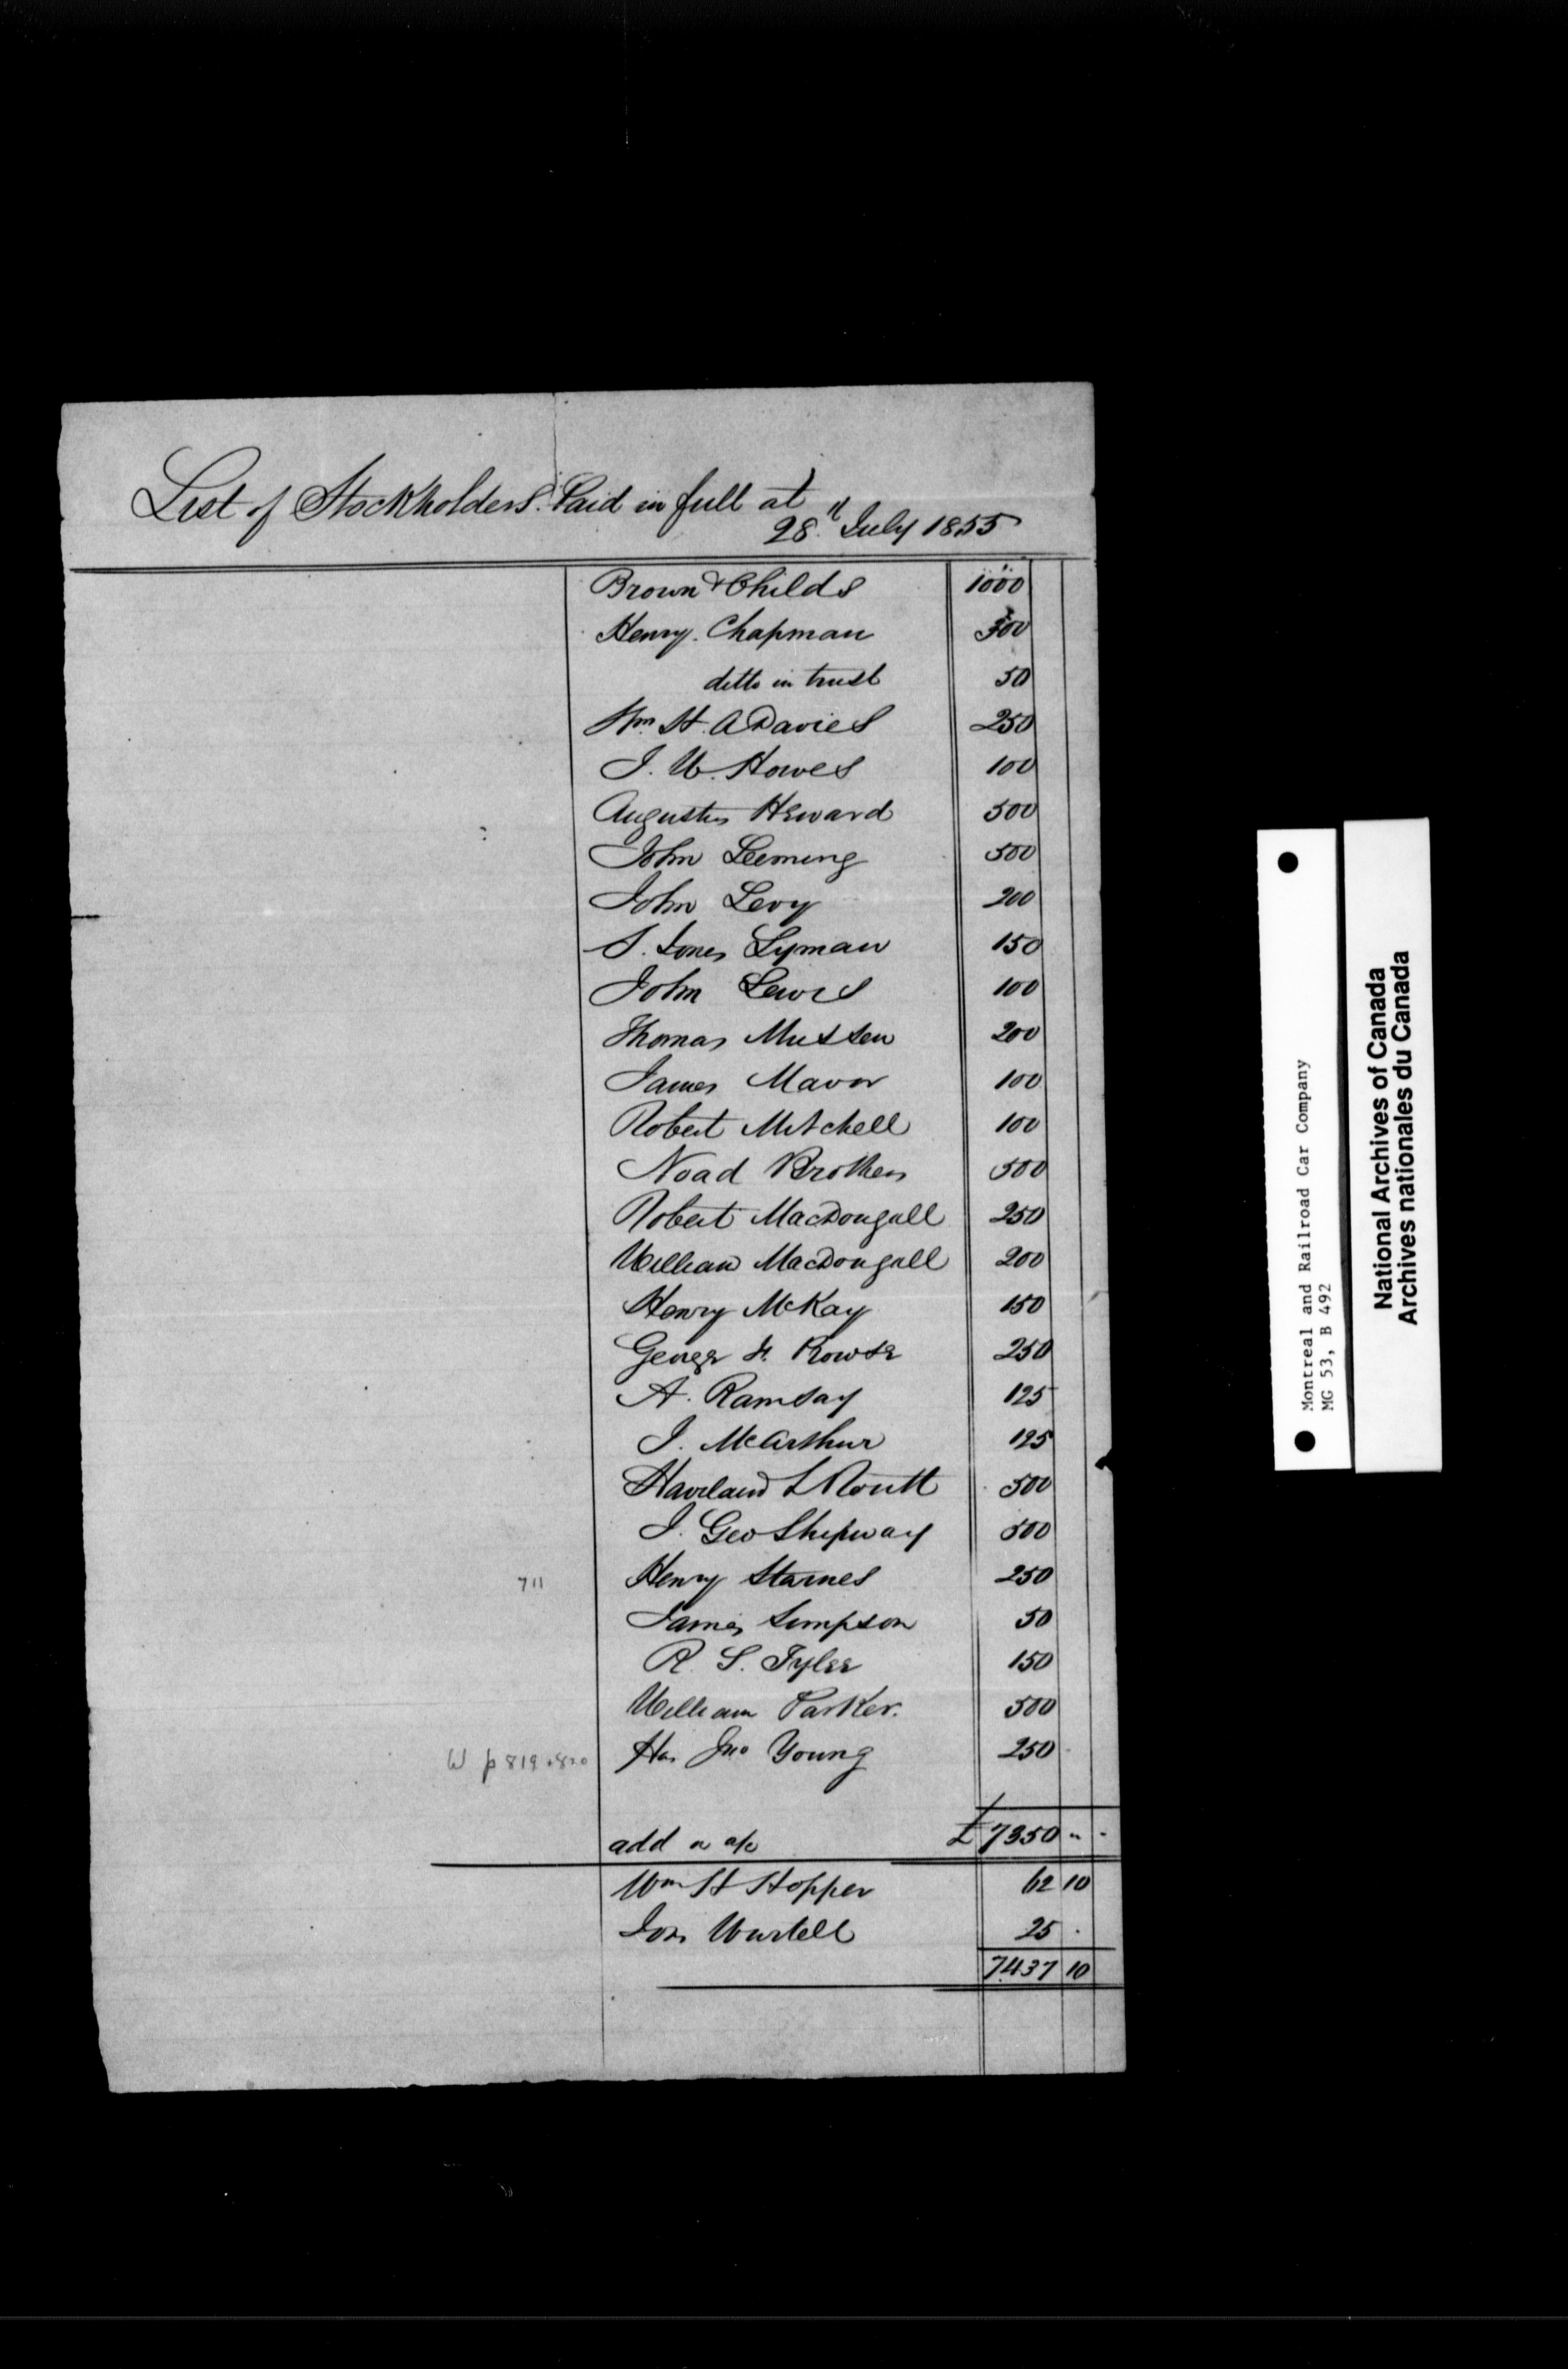 List of Stockholders. Paid in full at
28" July 1855
Brown & Childs 1000
Henry Chapman 500
ditto in trust 50
Wm H. A Davies 250
J. W. Howes 100
Augustus Heward 500
John Leeming 500
John Levy 200
S. Jones Lyman 150
John Lewis 100
Thomas Mussen 200
James Mavor 100
Robert Mitchell 100
Noad Brothers 500
Robert MacDougall 250
William MacDougall 200
Henry McKay 150
George F. Rowse 250
A. Ramsay 125
J. McArthur 125
Haviland L Routh 500
J. Geo Shipway 500
711 Henry Starnes 250
James Simpson 50
R. S. Tylee 150
William Parker. 500
W p 819+820 Hon Jno Young 250
add on a/c £ 7350 " -
Wm H Hopper 62 10
Jon. Wurtell 25 .
7437 10
Montreal and Railroad Car Company
MG 53, B 492
National Archives of Canada
Archives nationales du Canada